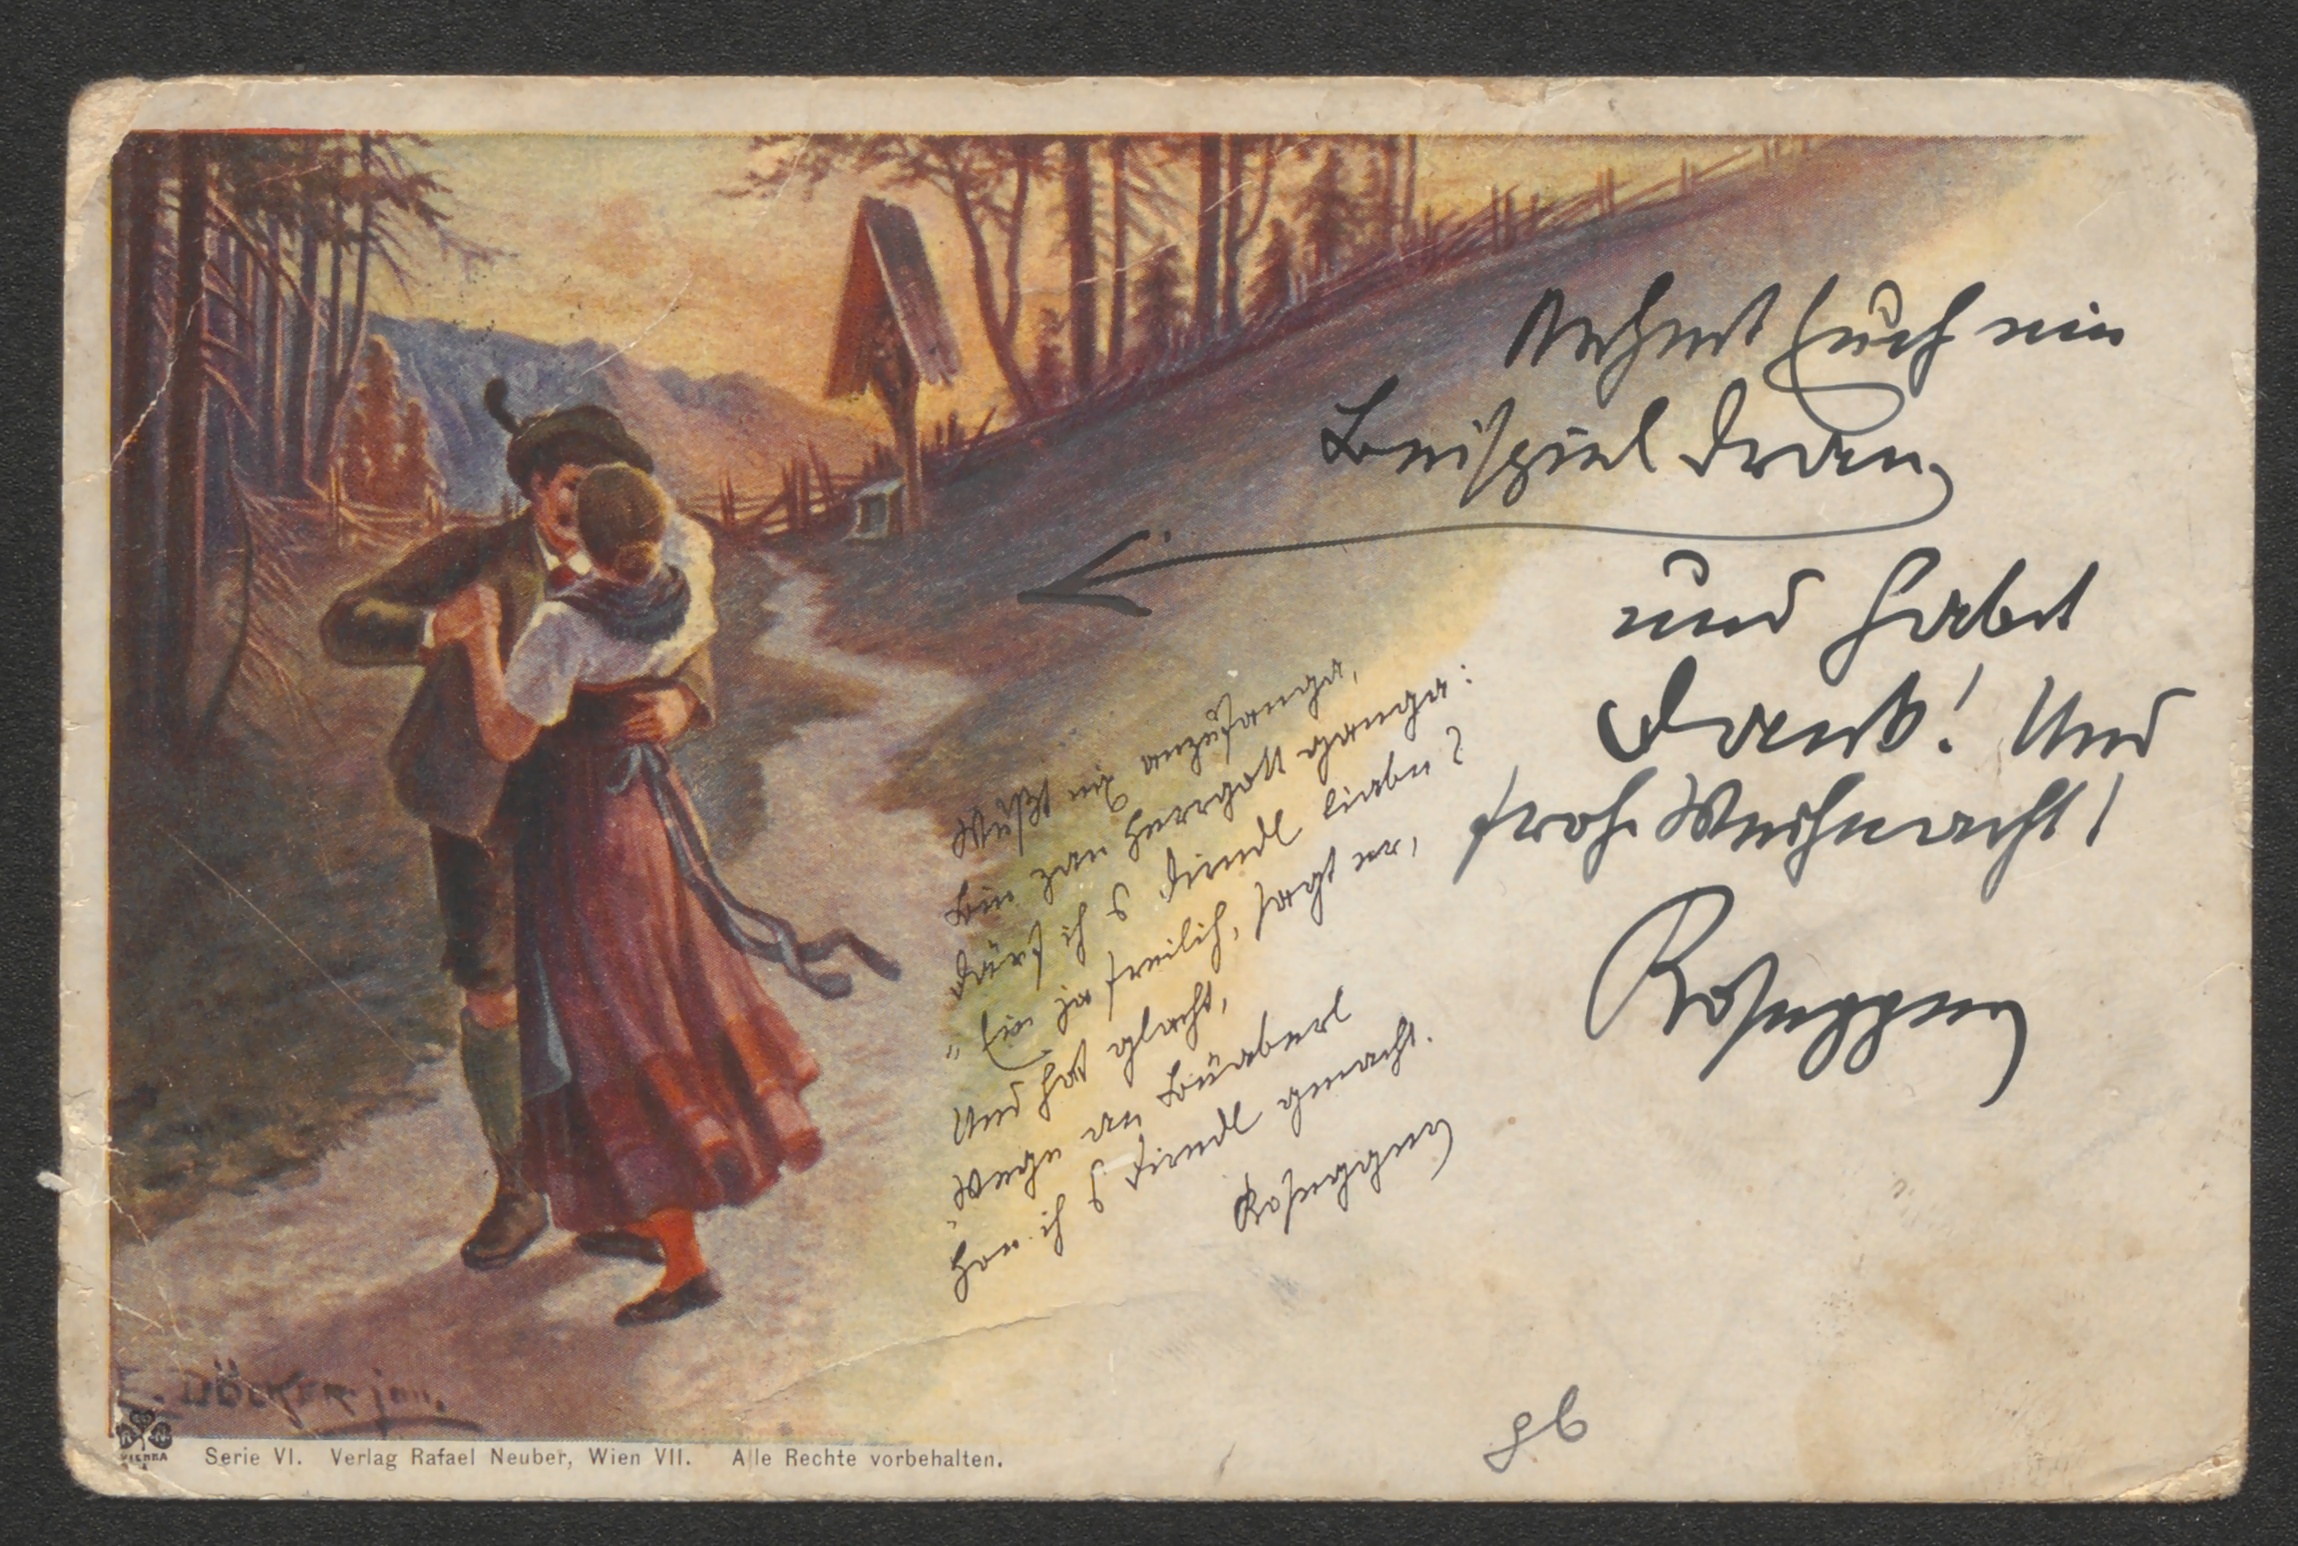 Nehmt Euch ein
Beispiel dran,
und habet
Dank! Und
froh. Weihnacht!
Rosegger
Bin zan Herrgott ganga:
Därf ih s Diendl liabn?
„Ei ja freilih, sagt er,
Und hat glacht,
Wegn an Büaberl
Han ih s Diendl gmacht.
Rosegger
E. DÖCKER jun.
VIENNA
Serie VI. Verlag Rafael Neuber, Wien VII. Alle Rechte vorbehalten.